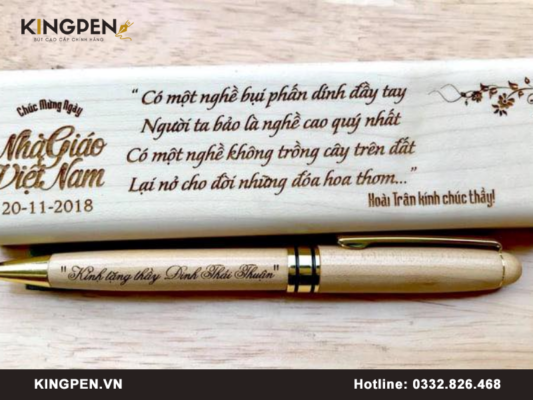 KINGPEN
BÚT CAO CẤP CHÍNH HÃNG
Chúc Mừng Ngày
Nhà Giáo
Việt Nam
20-11-2018
“ Có một nghề bụi phấn dính đầy tay
Người ta bảo là nghề cao quý nhất
Có một nghề không trồng cây trên đất
Lại nở cho đời những đóa hoa thơm...”
Hoài Trân kính chúc thầy!
"Kính tặng thầy Đinh Thái Thuận"
KINGPEN.VN
Hotline: 0332.826.468